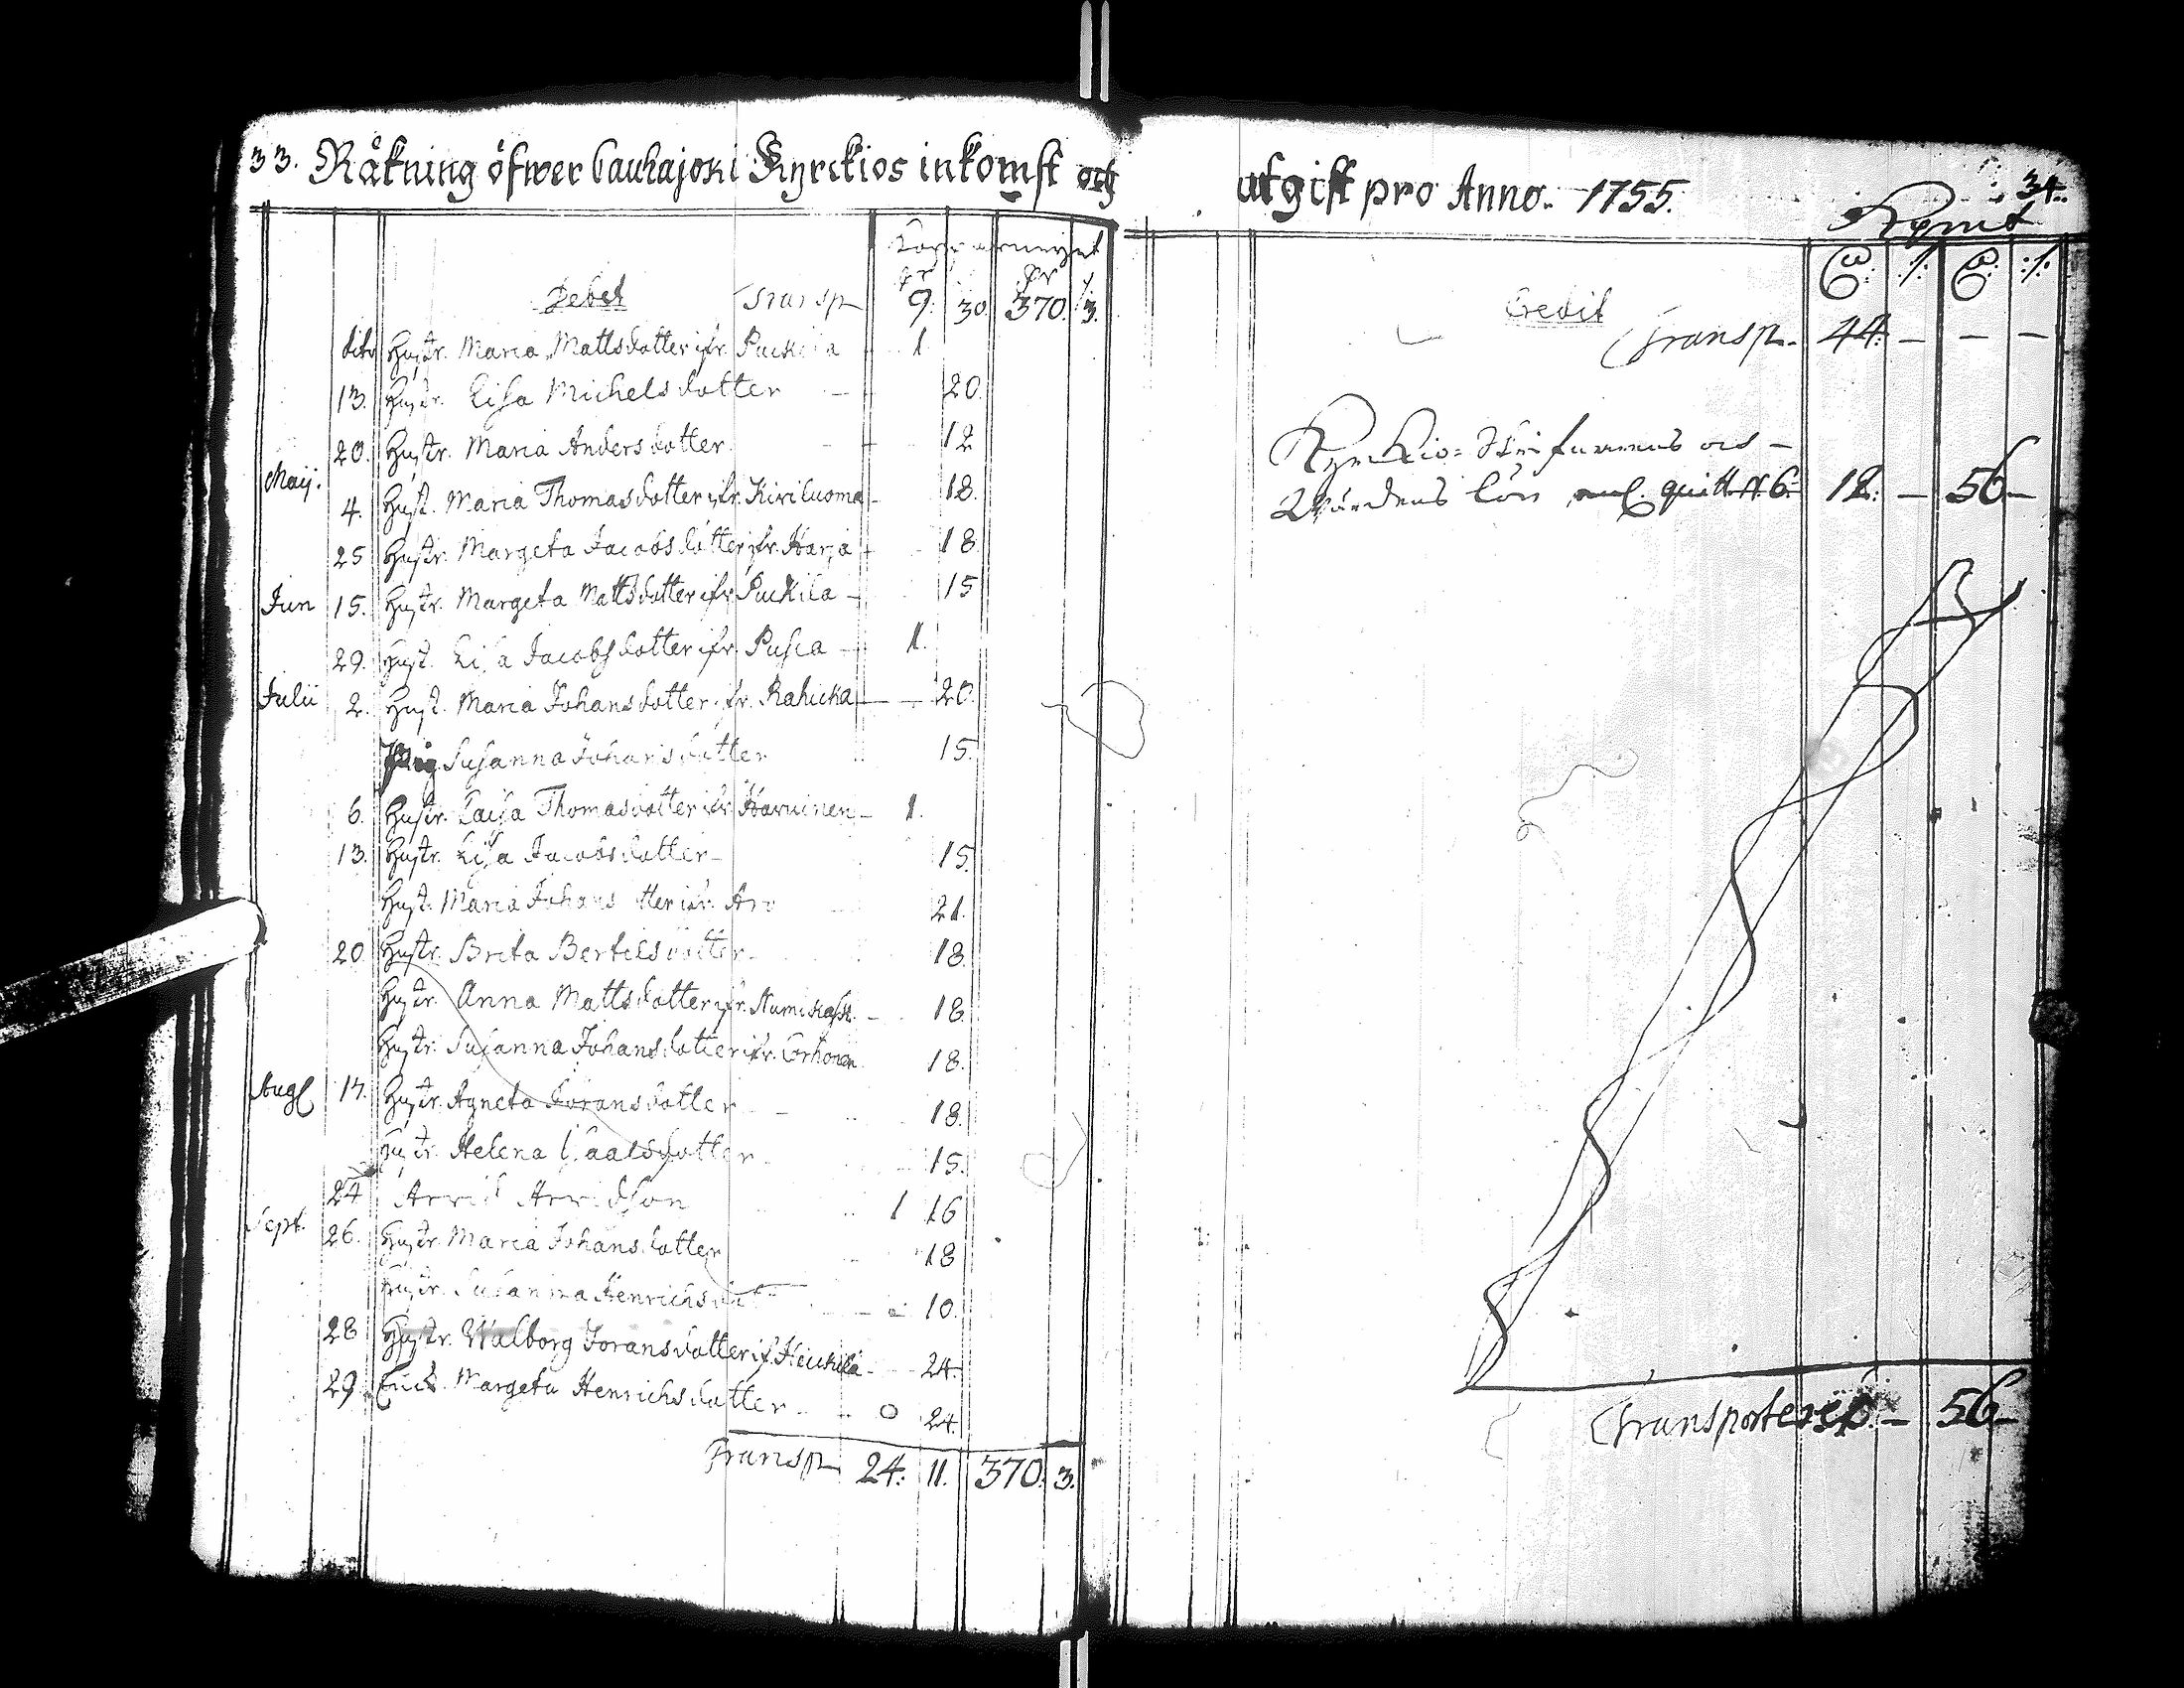 33. Räkning öfwer Cauhajoki Kyrckios inkomst och
Debet Transp 9. 30. 370. 3.
dito Hustr. Maria Mattsdotter ifr. Puckila 1
13. Hustr. Lisa Michelsdotter 20.
20. Hustr. Maria Andersdotter 12
Maij. 4. Hust. Maria Thomasdotter ifr. Kiriluoma 18.
25 Hustr. Margeta Jacobsdotter ifr. Harja 18
Jun 15. Hustr. Margeta Mattsdotter ifr. Puckila 15
29. Hust. Lisa Jacobsdotter ifr. Pusca 1.
Julii 2. Hust. Maria Johansdotter ifr. Rahicka 20.
Pig Susanna Johansdotter 15.
6. Hustr. Caisa Thomasdotter ifr. Havuinen 1.
13. Hustr. Lisa Jacobsdotter 15.
Hust. Maria Johans tter ifr. Aro 21.
20. Hustr. Brita Bertelsdotter 18.
Hustr. Anna Mattsdotter ifr. 18.
Hustr. Susanna Johansdotter ifr. Corhonen 18.
Aug 17. Hustr. Agneta Joransdotter 18.
Hustr. Helena dotter 15.
24 Arvid Arvidson 1 16
Sept. 26. Hustr. Maria Johansdotter 18
Hustr. Susanna Henrichs 10.
28 Hustr. Walborg Joransdotter if. Heickilä 24.
29. Margeta Henrichsdotter 0 24.
Transp 24. 11. 370. 3.
utgift pro Anno. 1755. 34.
Credit
Transp. 44. — — —
Kyrckio- och
Wärdens lön quitt. N. 6. 12. — 56 —
Transporteres — 56 —